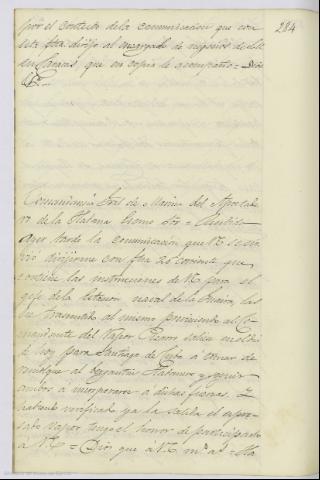 284
por el contesto de la comunicacion que con
esta fha. dirijo al encargado de negocios de S.M.
en Caracas, que en copia le acompaño = Dios
&ª=
Comandancia Gral de Marina del Apostade
ro de la Habana Escmo Sor = Recibida
ayer tarde la comunicacion que V.E. se sir
vió dirijirme con fha 20 corriente que
contiene las instrucciones de V.E. para el
gefe de la Estacion naval de la Guaira, las
he trasmitido al mismo previniendo al Co
mandante del Vapor Pizarro salga
de hoy para Santiago de Cuba á tomar de
remolque al bergantin Habanero y seguir
ambos a incorporarse a dichas fuerzas. Y
habiendo verificado ya la salida el espre
sado vapor tengo el honor de participarlo
a V.E. = Dios gue á V.E. m.s a.s = Ha